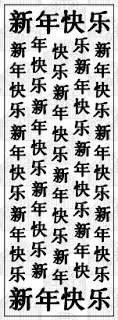 新年快乐
新年快乐新年快乐新年快乐
年快乐新年快乐新年快乐新
快乐新年快乐新年快乐新年
乐新年快乐新年快乐新年快
新年快乐新年快乐新年快乐
新年快乐